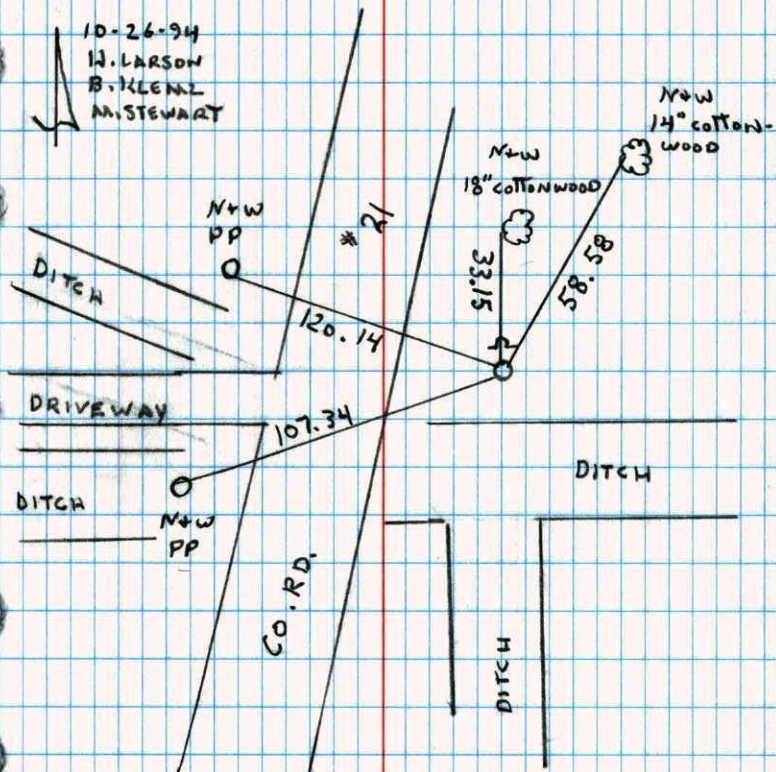 10-26-94
W. LARSON
B. KLEMZ
M. STEWART
N+W
14" COTTON-
WOOD
N+W
18" COTTONWOOD
N+W
PP
# 21
DITCH
33.15
58.58
120.14
DRIVEWAY
107.34
DITCH
DITCH
N+W
PP
CO. RD.
DITCH